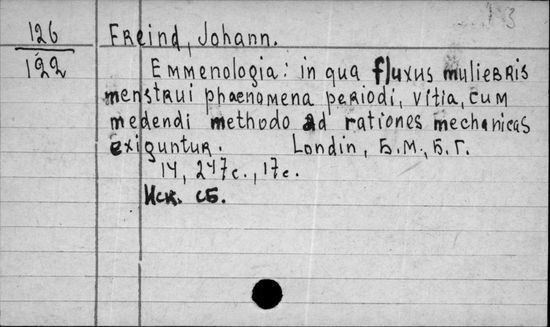 3
126 Freind, Johann.
122 Emmenologia: in qua fluxus muliebris
menstrui phaenomena periodi, vitia, cum
medendi methodo ad rationes mechanicas
exiguntur. Londin, Б.М., Б.Г.
14, 247с., 17с.
Иск. сб.